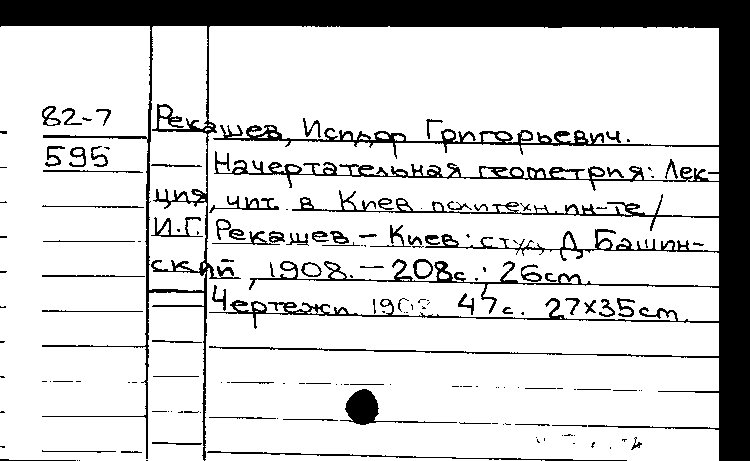 82-7 Рекашев, Исидор Григорьевич.
595 Начертательная геометрия: Лек-
ция, чит. в Киев политехн. ин-те /
И.Г. Рекашев – Киев: студ Д. Башин-
ский, 1908. – 208с.; 26см.
Чертежи. 1908. 47с. 27х35см.